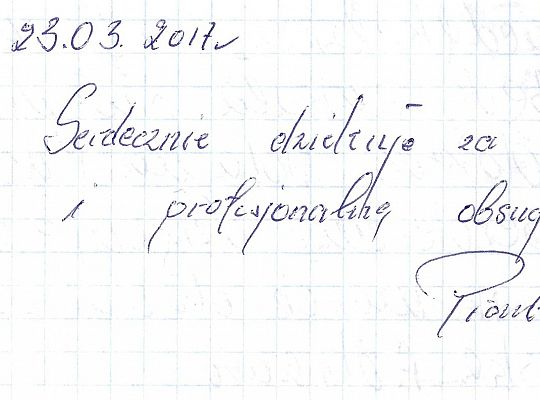 23.03.2017r
Serdecznie dziękuję za
i profesjonalną obsug